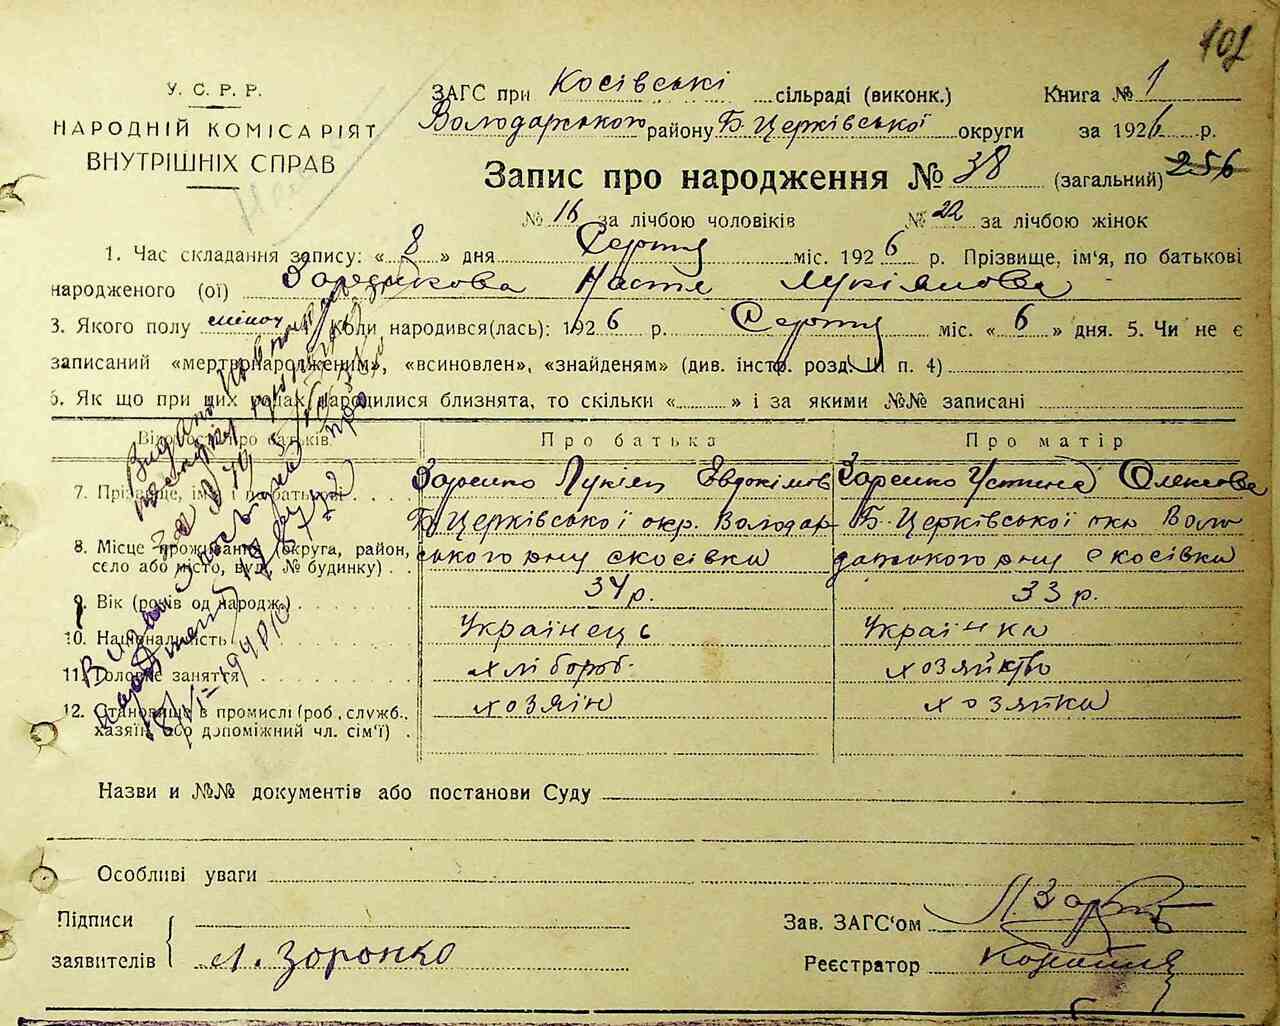 102
У. С. Р. Р.
НАРОДНІЙ КОМІСАРІЯТ
ВНУТРІШНІХ СПРАВ
ЗАГС при Косівські сільраді (виконк.) Книга № 1
Володарського району Б. Церківської округи за 1926 р.
Запис про народження № 38 (загальний) 256
№ 16 за лічбою чоловіків № 22 за лічбою жінок
1. Час складання запису: « 8 » дня Серпня міс. 1926 р. Прізвище, ім'я, по батькові
народженого (ої) Настя Лукіянова
3. Якого полу жіноч Коли народився(лась): 1926 р. Серпня міс. « 6 » дня. 5. Чи не є
записаний «мертвонародженим», «всиновлен», «знайденям» (див. інстр. розд. III п. 4)
6. Як що при цих родах народилися близнята, то скільки « » і за якими №№ записані
Відомости про батьків Про батька Про матір
7. Прізвище, ім'я і по батькові Лукіян Евдокімов Устина Олексова
Б. Церківської окр. Володар- Б. Церківської окр Воло
8. Місце проживання (округа, район, ського рну с косівка дарського рну с косівка
село або місто, вул. № будинку)
9. Вік (років од народж.) 34 р. 33 р.
10. Національність Українець Українка
11. Головне заняття хлібороб. хозяйство
12. Становище в промислі (роб., служб., хозяін хозяйка
хазяїн, або допоміжний чл. сім'ї)
Назви и №№ документів або постанови Суду
Особливі уваги
Підписи
заявителів Л. Зоронко
Зав. ЗАГС'ом
Реєстратор